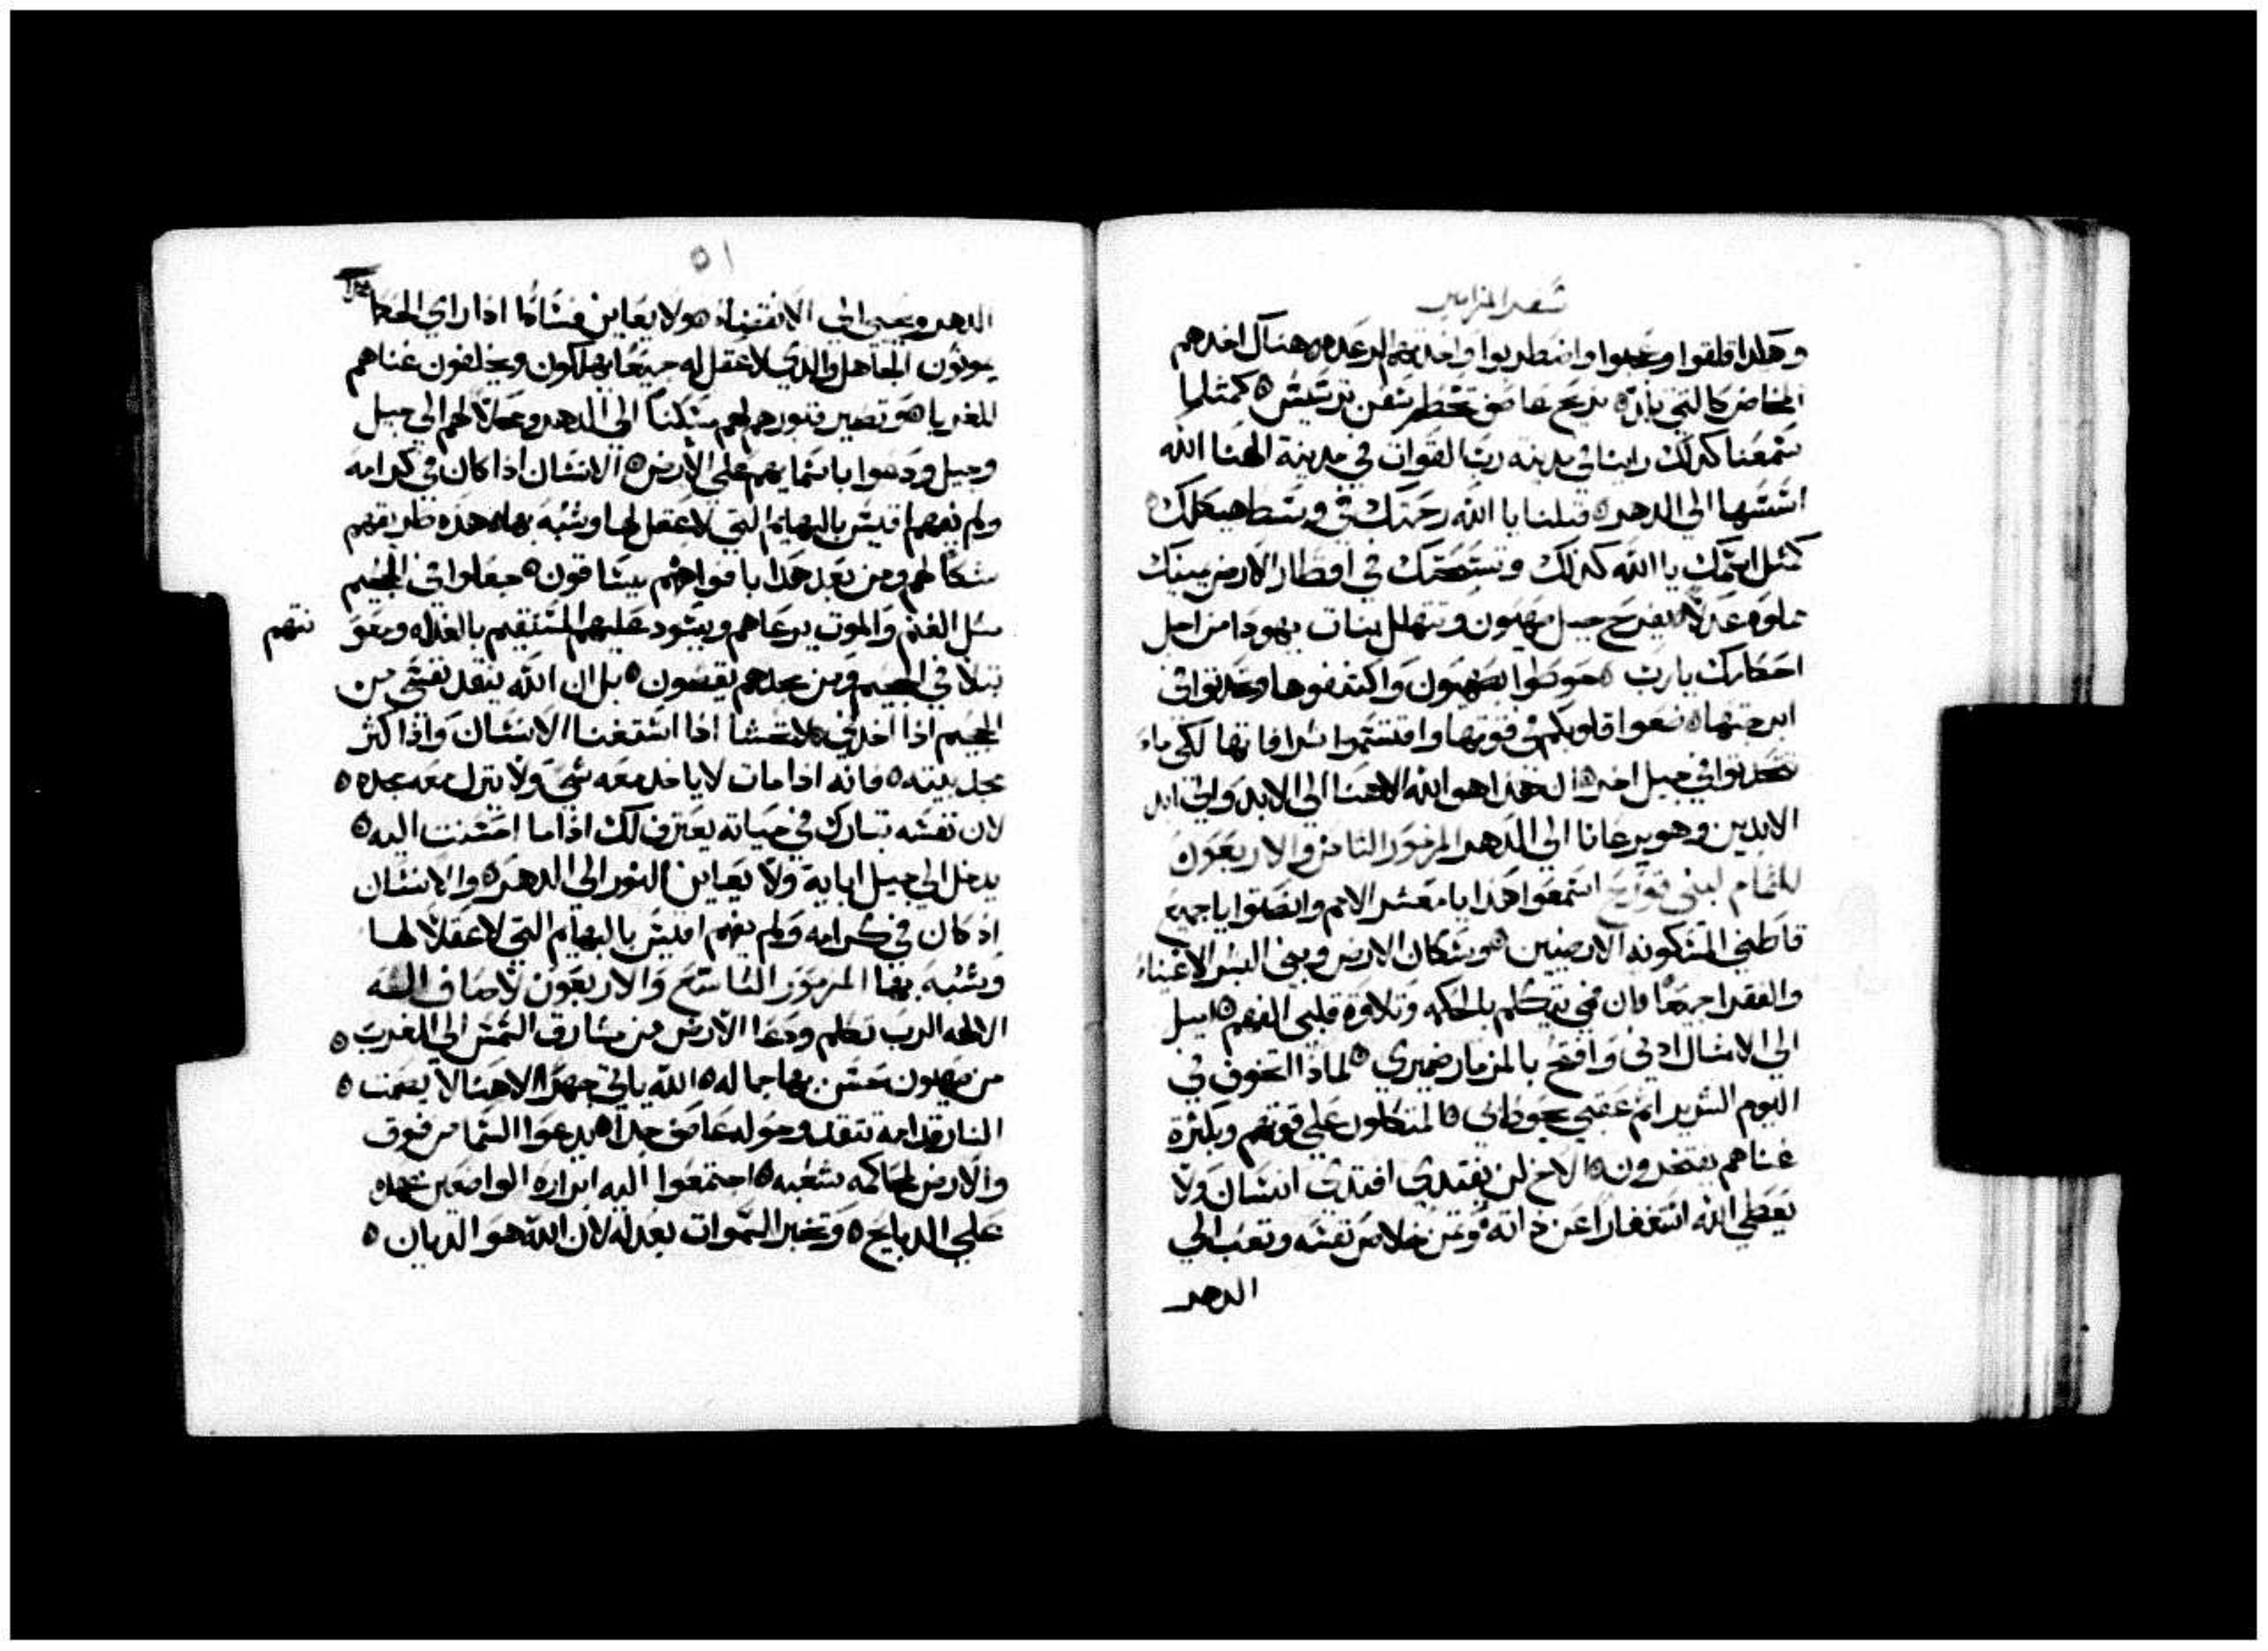 سفر المزامير
وهكدا قلقوا وعجبوا واضطربوا واخدتهم الرعده هناك اخدهم
المخاض كالتي تلد بريح عاصف تحطم سفن ترسيس كمثل ما
سمعنا كدلك راينا في مدينه رب القوات في مدينة الهنا الله
اسسها الي الدهر قبلنا يا الله رحمتك في وسط هيكلك
كمثل اسمك يا الله كذلك وتسبحتك في اقطار الارض يمينك
مملوه عدلا يفرح جبل صهيون وتتهلل بنات يهودا من اجل
احكامك يارب حوطوا بصهيون واكتنفوها وتحدثوا في
ابرجتها ضعوا قلوبكم في قوتها واقتسموا شرافاتها لكي ما
تتحدثوا في جيل اخر ان هذا هو الله الاهنا الي الابد والي ابد
الابدين وهو يرعانا الي الدهر المزمور الثامن والاربعون
للتمام لبني قورح استمعوا هدا يا معشر الامم وانصتوا يا جميع
قاطني المسكونه الارضيين وسكان الارض وبني البشر الاغنياء
والفقرا جميعا فان فمي يتكلم بالحكمه وتلاوة قلبي الفهم اميل
الي الامثال ادني وافتح بالمزمار ضميري لمادا اتخوف في
اليوم الشرير اتم عقبي يحوط بي المتكلون علي قوتهم وبكثرة
غناهم يفتخرون الاخ لن يفتدي افتدي انسان ولا
يعطي الله استغفارا عن داته وثمن خلاص نفسه وتعب الي
الدهر
٥١
الدهر ويحيي الي الانقضاء هو لا يعاين فسادا ادا راي الحكما
يموتون الجاهل والدي لا عقل له جميعا يهلكون ويخلفون غناهم
للغربا وتصير قبورهم لهم مسكنا الي الدهر ومحلا لهم الي جيل
وجيل ودعوا باسمايهم علي الارض الانسان اذا كان في كرامه
ولم يفهم اقيس بالبهايم التي لا عقل لها وشبه بها هده طريقهم
شكا لهم ومن بعد هدا بافواههم يتساقون جعلوا في الجحيم
مثل الغنم والموت يرعاهم ويسود عليهم المستقيم بالغداه ومعو
نتهم
تبلا في الجحيم ومن مجدهم يقصون بل ان الله ينقد نفسي من
الجحيم اذا اخدني لا تخشا ادا استغنا الانسان واذا كثر
مجد بيته فانه ادا مات لا ياخد معه شي ولا ينزل معه مجده
لان نفسه تبارك في حياته يعترف لك اذا ما احسنت اليه
يدخل الي جيل ابايه ولا يعاين النور الي الدهر والانسان
اد كان في كرامه ولم يفهم اقيس بالبهايم التي لا عقلا لها
وشبه بها المزمور التاسع والاربعون لاصاف الله
الاله الرب تكلم ودعا الارض من مشارق الشمس الي المغرب
من صهيون حسن بها جماله الله ياتي جهرا الاهنا لا يصمت
النار قدامه تتقد وحوله عاصف جدا يدعو السما من فوق
والارض لمحاكمه شعبه اجتمعوا اليه ابراره الواضعين عهده
علي الدبايح وتخبر السموات بعدله لان الله هو الديان